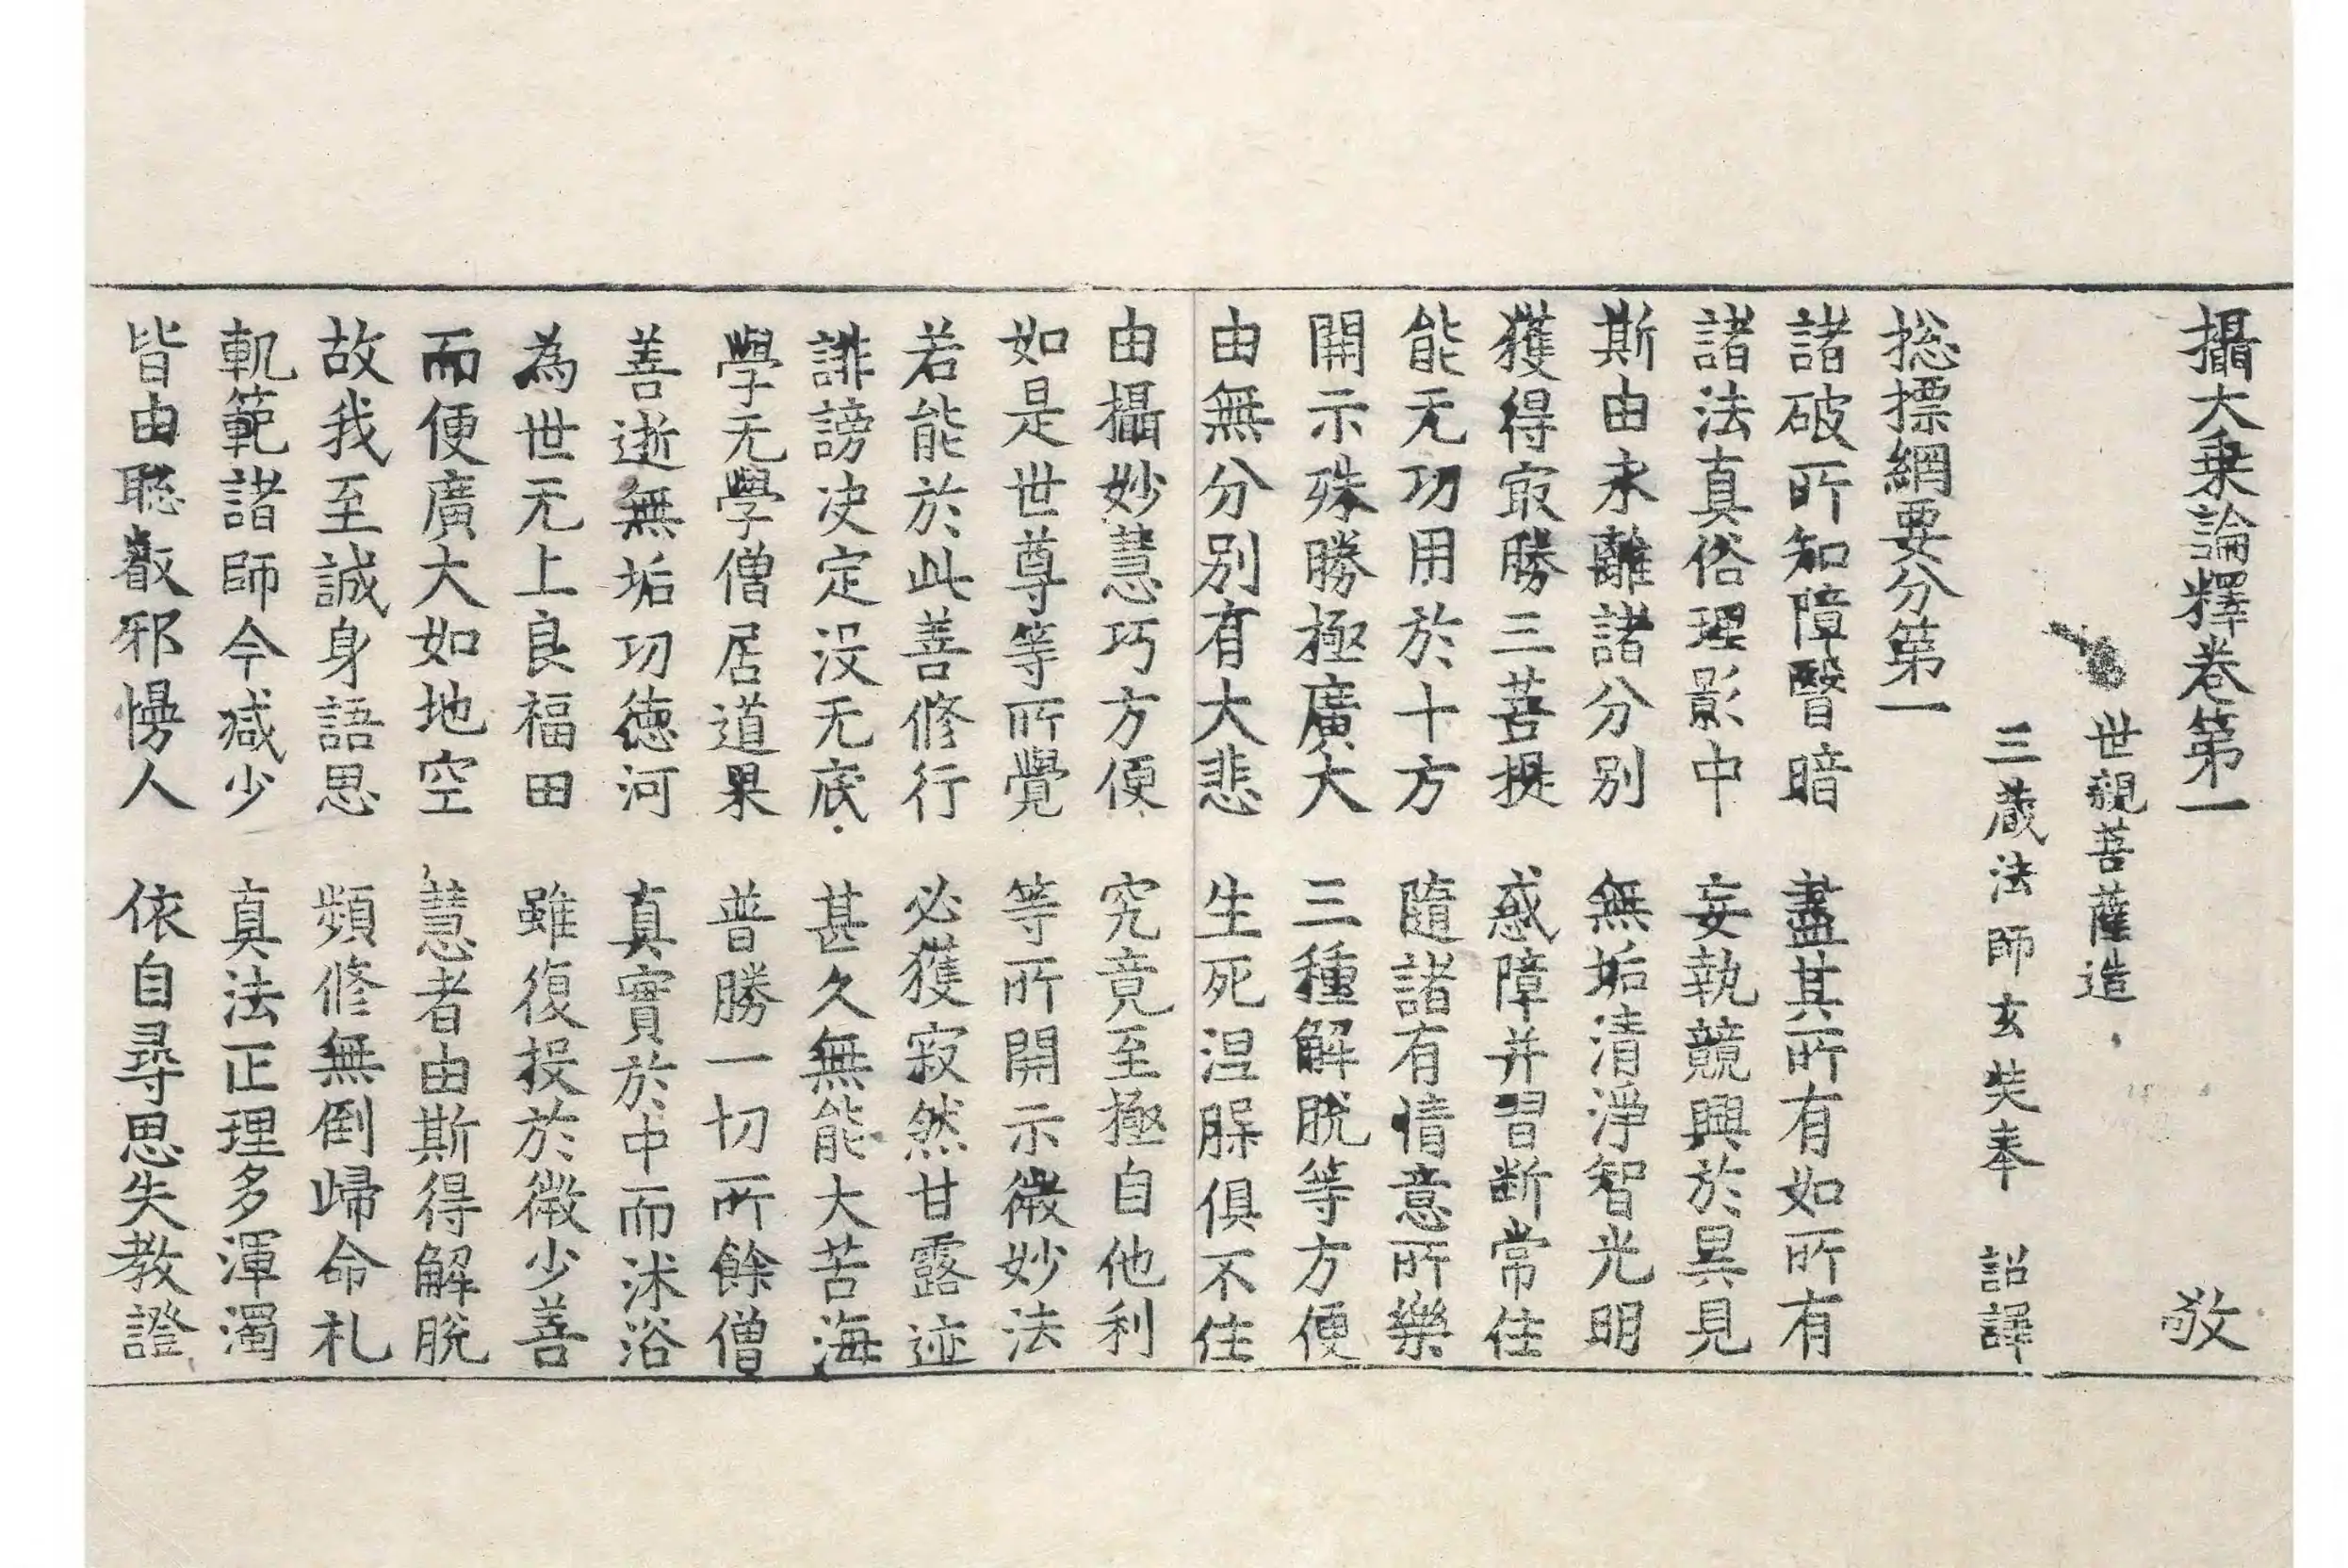 攝大乗論釋卷第一 敬
世親菩薩造
三蔵法師玄奘奉 詔譯
揔摽綱要分第一
諸破所知障翳暗 盡其所有如所有
諸法真俗理影中 妄執競興於異見
斯由未離諸分別 無垢清淨智光明
獲得㝡勝三菩提 惑障并習断常住
能无功用於十方 隨諸有情意所樂
開示殊勝極廣大 三種解脫等方便
由無分別有大悲 生死涅槃俱不住
由攝妙慧巧方便 究竟至極自他利
如是世尊等所覺 等所開示微妙法
若能於此善修行 必獲寂然甘露迹
誹謗决定没无底 甚久無能大苦海
學无學僧居道果 普勝一切所餘僧
善逝無垢功徳河 真實於中而沐浴
為世无上良福田 雖復投於微少善
而便廣大如地空 慧者由斯得解脫
故我至誠身語思 頻修無倒歸命礼
軌範諸師今减少 真法正理多渾濁
皆由聡叡邪慢人 依自尋思失教證